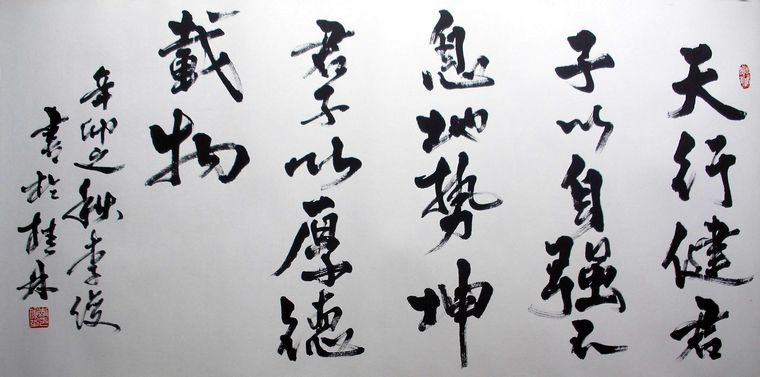 天行健君
子以自强不
息地势坤
君子以厚德
載物
辛卯之秋李俊
書於桂林